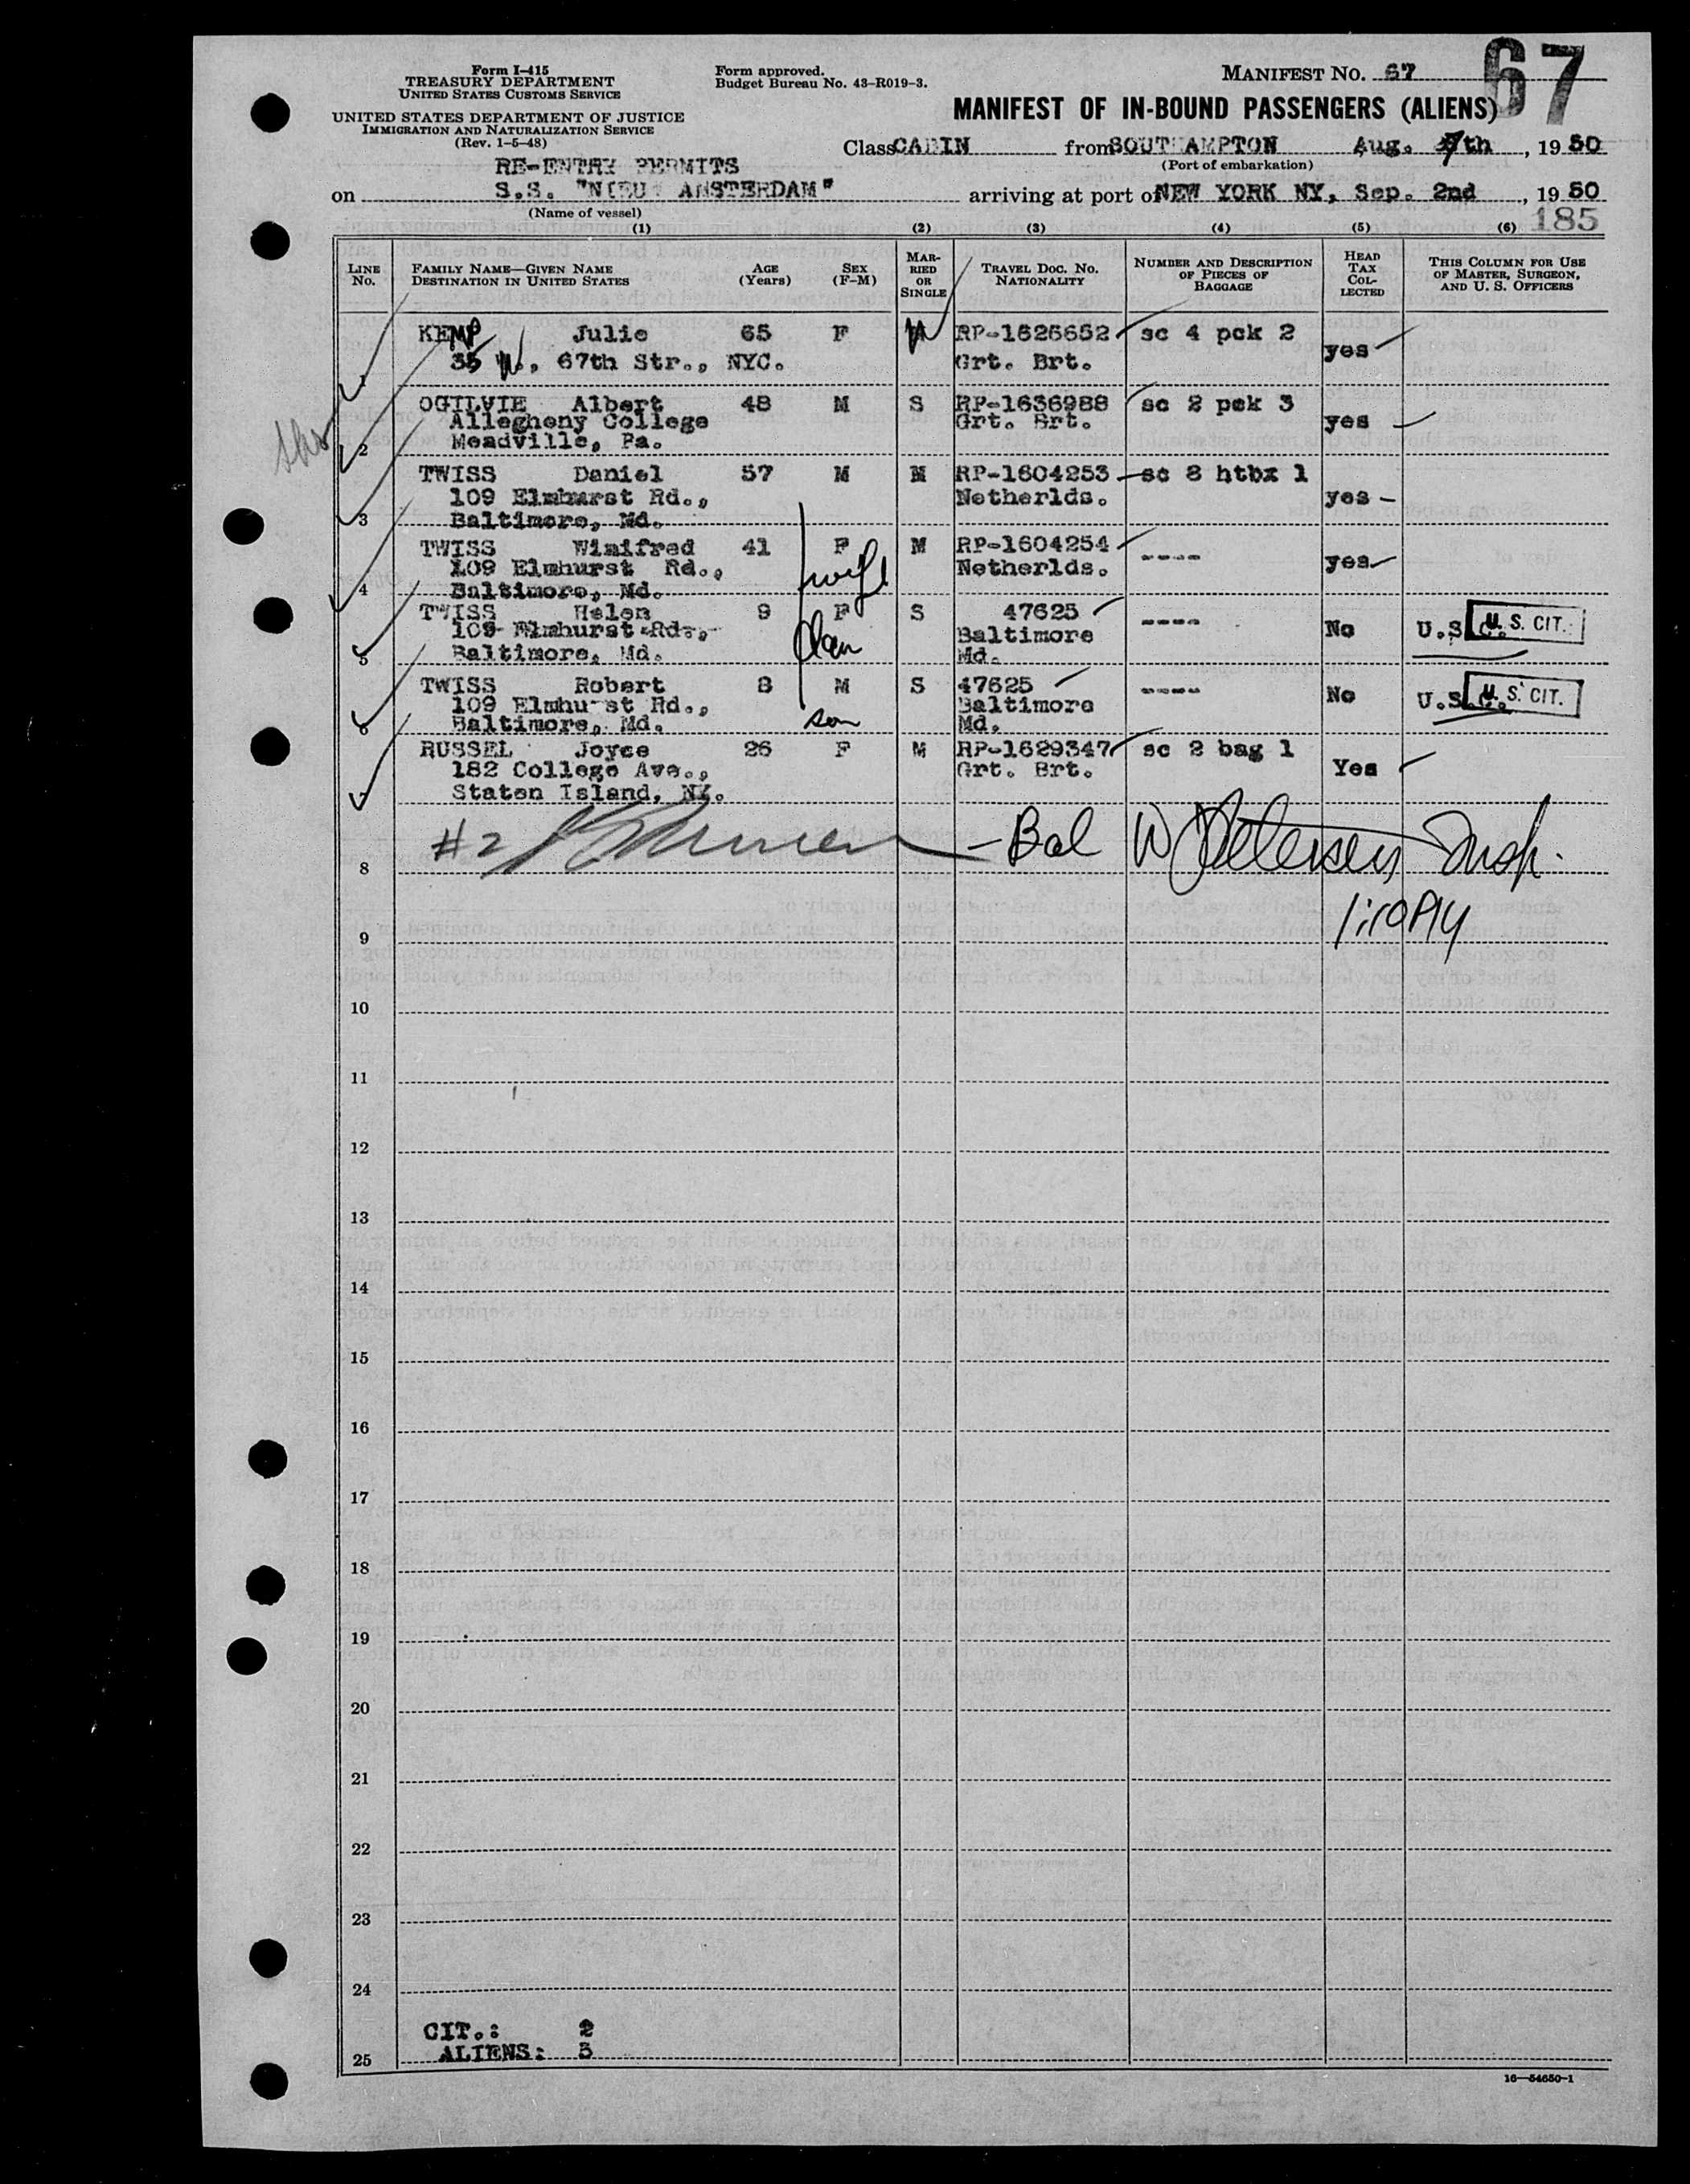 Form I-415
TREASURY DEPARTMENT
UNITED STATES CUSTOMS SERVICE
UNITED STATES DEPARTMENT OF JUSTICE
IMMIGRATION AND NATURALIZATION SERVICE
(Rev. 1-5-48)
Form approved.
Budget Bureau No. 43-R019-3.
MANIFEST NO. 67
67
MANIFEST OF IN-BOUND PASSENGERS (ALIENS)
Class CABIN from SOUTHAMPTON Aug. th, 1950
(Port of embarkation)
RE-ENTRY PERMITS
on S.S. "NIEUW AMSTERDAM" arriving at port of NEW YORK NY, Sep. 2nd, 1950
(Name of vessel)
185
(1) (2) (3) (4) (5) (6)
LINE NO. FAMILY NAME—GIVEN NAME DESTINATION IN UNITED STATES AGE (Years) SEX (F-M) MARRIED OR SINGLE TRAVEL DOC. NO. NATIONALITY NUMBER AND DESCRIPTION OF PIECES OF BAGGAGE HEAD TAX COLLECTED THIS COLUMN FOR USE OF MASTER, SURGEON, AND U. S. OFFICERS
KEMP Julie 65 F RP-1625652 sc 4 pck 2
35 W, 67th Str., NYC. Grt. Brt. yes
1
OGILVIE Albert 48 M S RP-1636988 sc 2 pck 3
Allegheny College Grt. Brt. yes
2 Meadville, Pa.
TWISS Daniel 57 M M RP-1604253 sc 8 htbx 1
109 Elmhurst Rd., Netherlds. yes
3 Baltimore, Md.
TWISS Winifred 41 F M RP-1604254 ----
109 Elmhurst Rd., wife Netherlds. yes
4 Baltimore, Md.
TWISS Helen 9 F S 47625 ----
109 Elmhurst Rd., Baltimore No U.S.C. U. S. CIT.
5 Baltimore, Md. Dau Md.
TWISS Robert 8 M S 47625 ----
109 Elmhurst Rd., Baltimore No U.S.C. U. S. CIT.
6 Baltimore, Md. son Md.
RUSSEL Joyce 26 F M RP-1629347 sc 2 bag 1
182 College Ave., Grt. Brt. Yes
7 Staten Island, NY.
#2 - Bal W Petersen Insp.
8
9
10
11
12
13
14
15
16
17
18
19
20
21
22
23
24
CIT.: 2
25 ALIENS: 5
16—54650-1